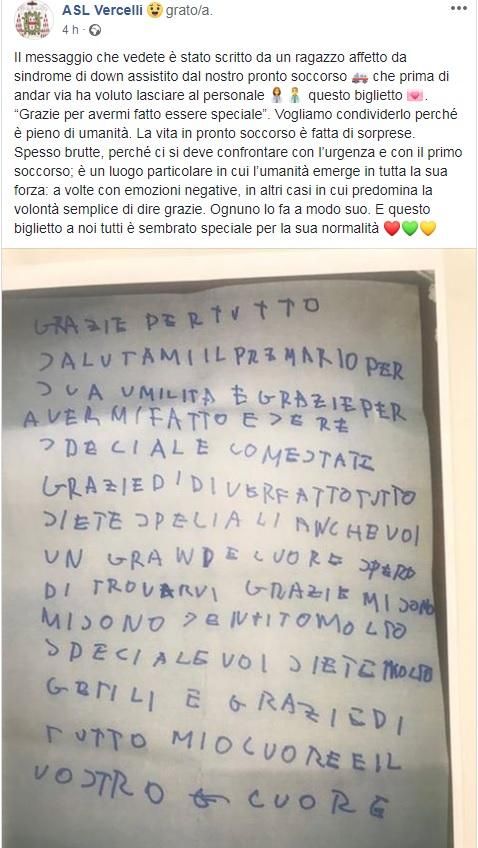 ASL Vercelli 😧 grato/a.
4 h ·
Il messaggio che vedete è stato scritto da un ragazzo affetto da
sindrome di down assistito dal nostro pronto soccorso 🚑 che prima di
andar via ha voluto lasciare al personale 👩‍⚕️ 👨‍⚕️ questo biglietto 💌.
“Grazie per avermi fatto essere speciale”. Vogliamo condividerlo perché
è pieno di umanità. La vita in pronto soccorso è fatta di sorprese.
Spesso brutte, perché ci si deve confrontare con l’urgenza e con il primo
soccorso; è un luogo particolare in cui l’umanità emerge in tutta la sua
forza: a volte con emozioni negative, in altri casi in cui predomina la
volontà semplice di dire grazie. Ognuno lo fa a modo suo. E questo
biglietto a noi tutti è sembrato speciale per la sua normalità ❤️💚💛
GRAZIE PER TUTTO
SALUTAMI IL PREMARIO PER
SUA UMILITA E GRAZIE PER
AVERMI FATTO ESERE
SPECIALE COME STATE
GRAZIE DI DI VER FATTO TUTTO
SIETE SPELIALI ANCHE VOI
UN GRANDE CUORE SPERO
DI TROVARVI GRAZIE MI SONO
MI SONO SENTITO MOLTO
SPECIALE VOI SIETE MOLTO
GETILI E GRAZIE DI
TUTTO MIO CUORE E IL
VOSTRO CUORE